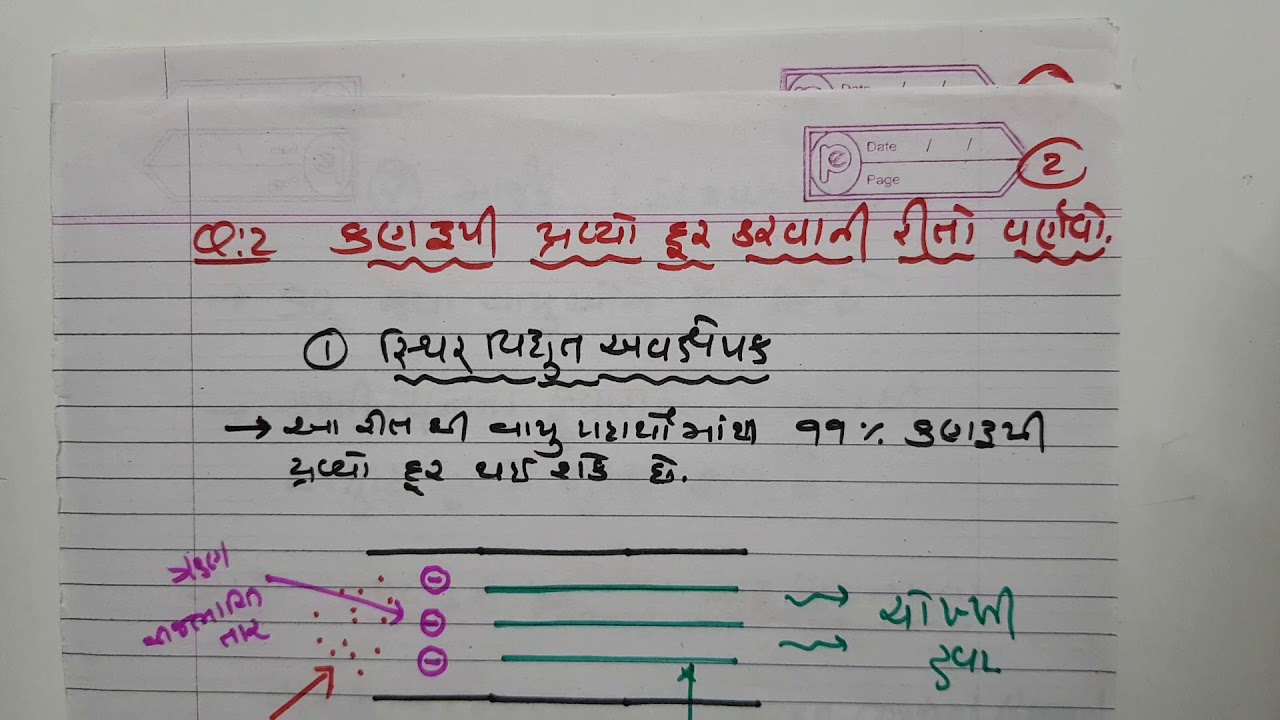 Date / /
Page
2
Q:2 કણરૂપી દ્રવ્યો દૂર કરવાની રીતો વર્ણવો.
① સ્થિર વિદ્યુત અવક્ષેપક
→ આ રીત થી વાયુ પદાર્થોમાંથી ૧૧% કણરૂપી
દ્રવ્યો દૂર થઈ શકે છે.
તાર
ચોખ્ખી
હવા